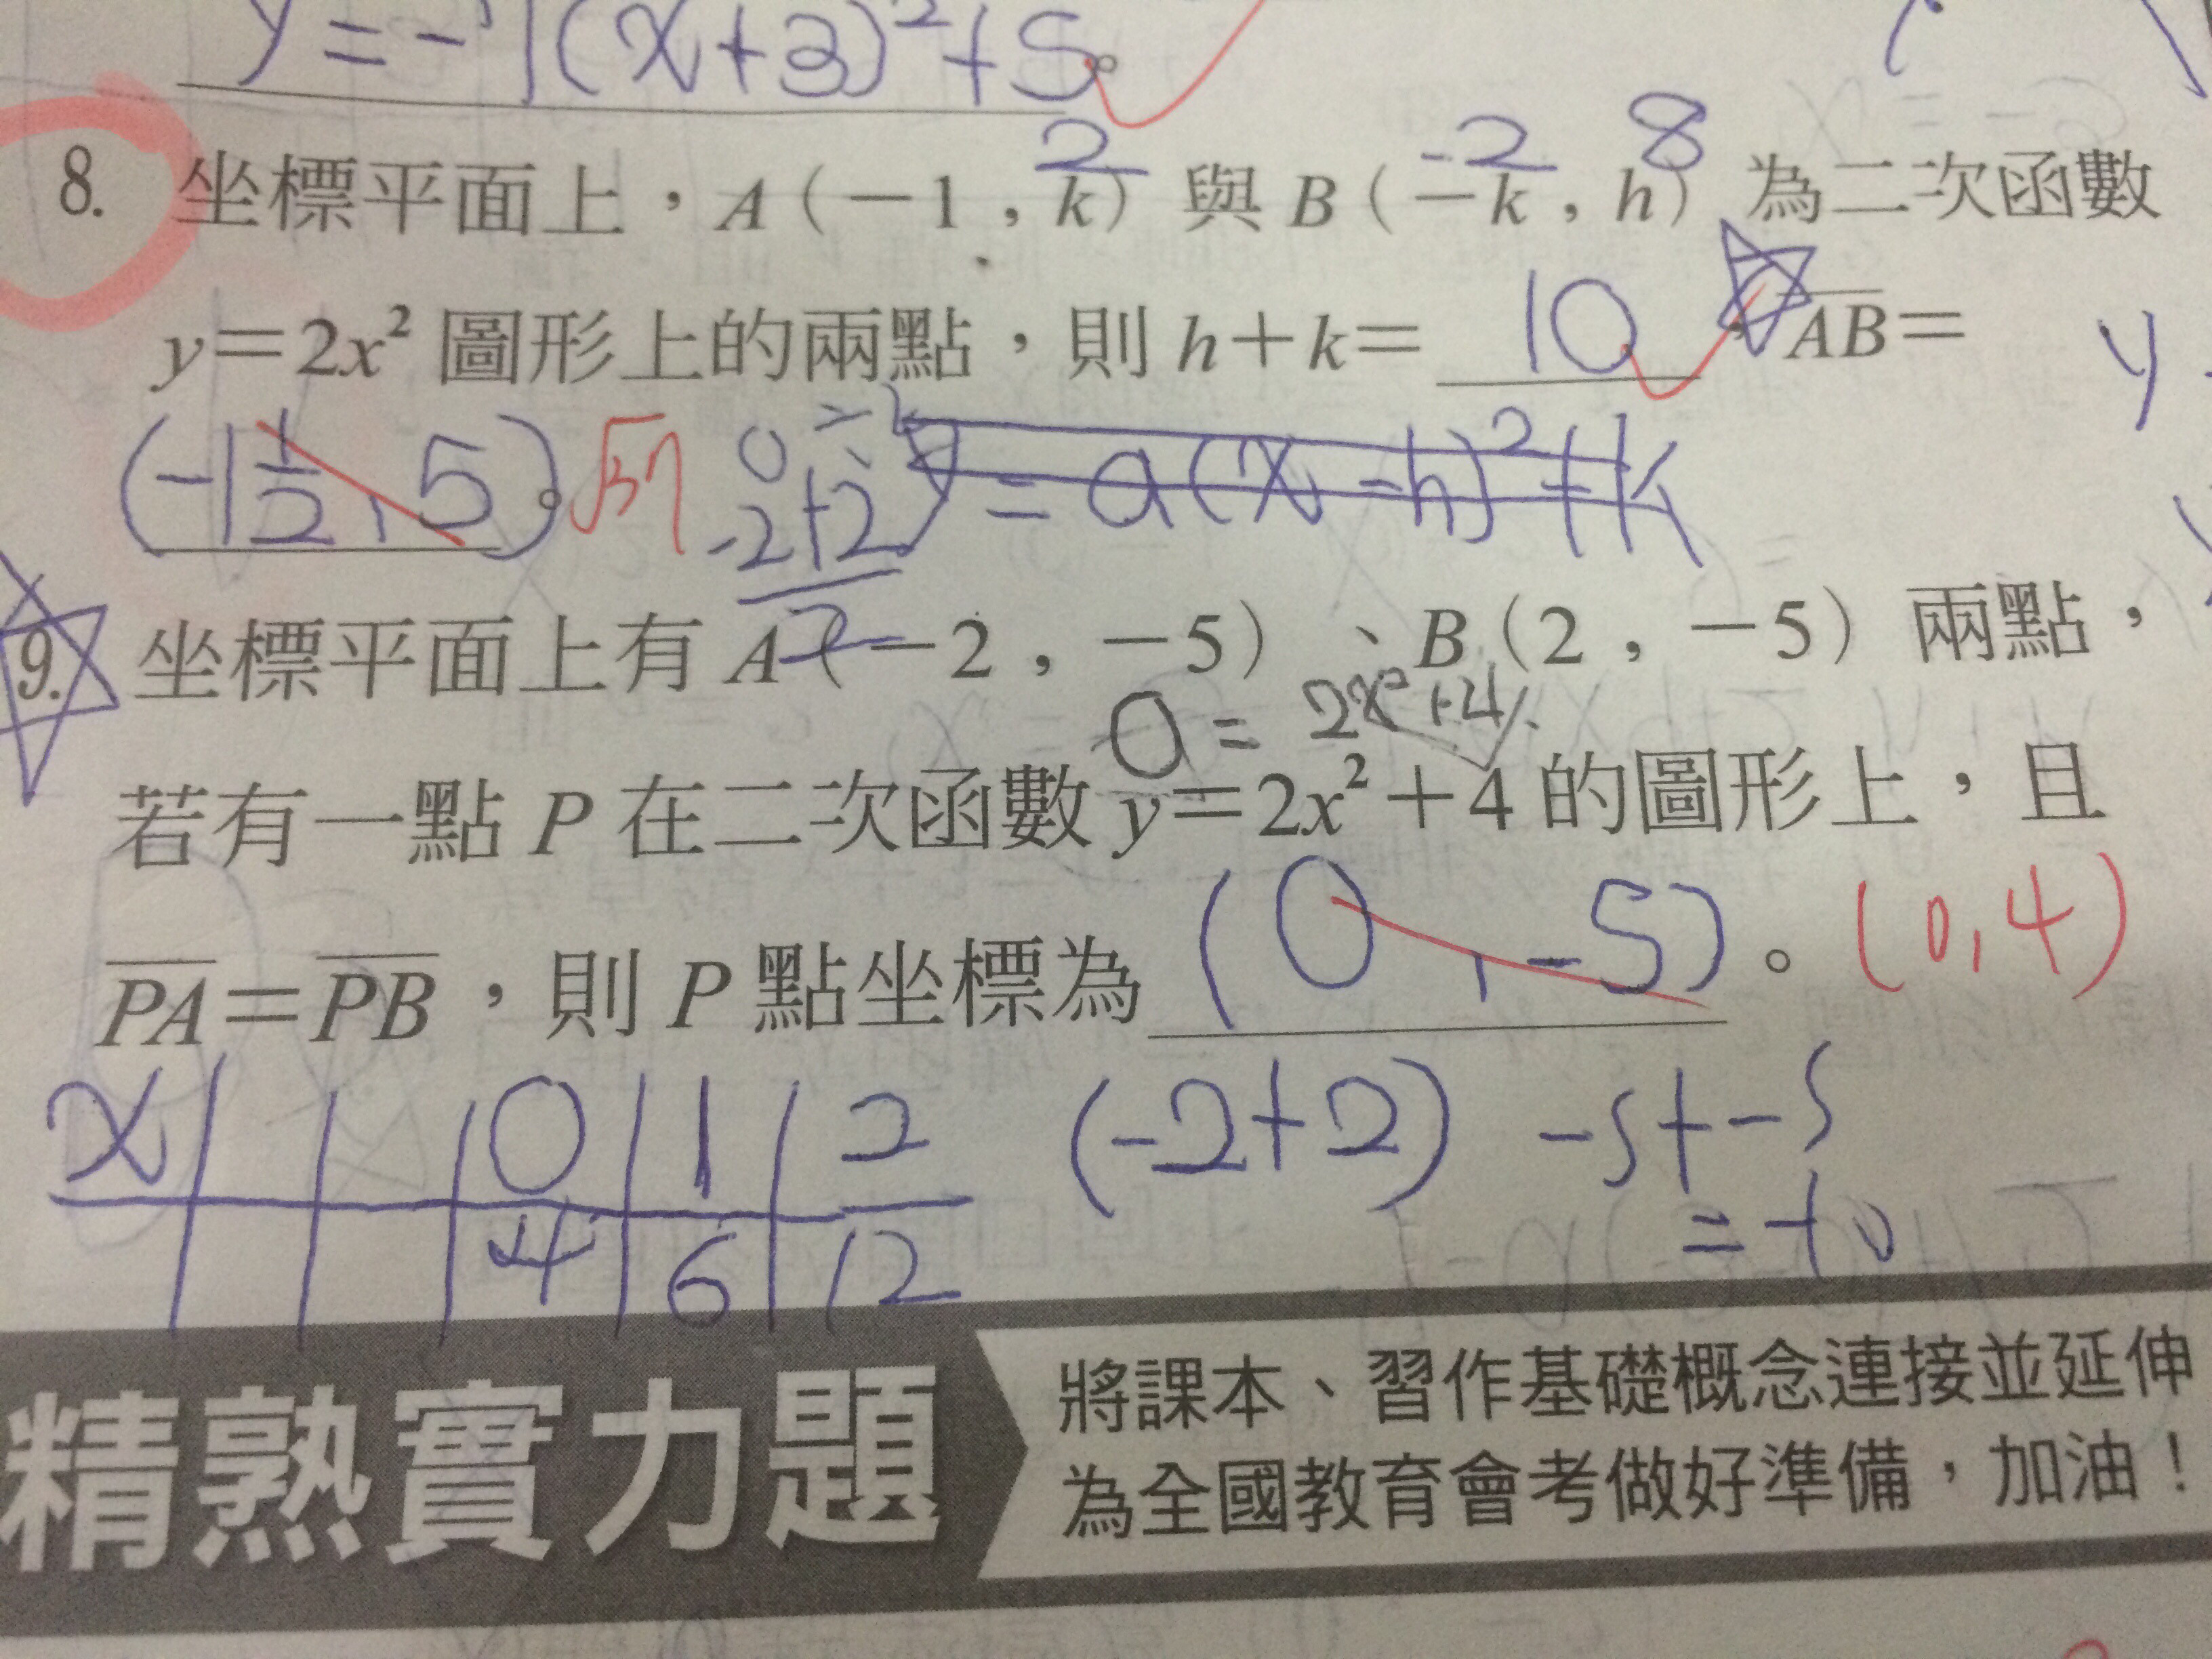 y=-1(x+3)²+5。
2 -2 8
8. 坐標平面上，A(-1,k)與B(-k,h)為二次函數
y=2x²圖形上的兩點，則h+k= 10 ，AB=
(-1½,5)。√37 y=a(x-h)²+k
-2+2
2
9. 坐標平面上有A(-2,-5)、B(2,-5)兩點，
0=2x²+4
若有一點P在二次函數y=2x²+4的圖形上，且
PA=PB，則P點坐標為 (0,-5)。(0,4)
x 0 1 2 (-2+2) -5+-5
4 6 12 =-10
精熟實力題
將課本、習作基礎概念連接並延伸
為全國教育會考做好準備，加油！